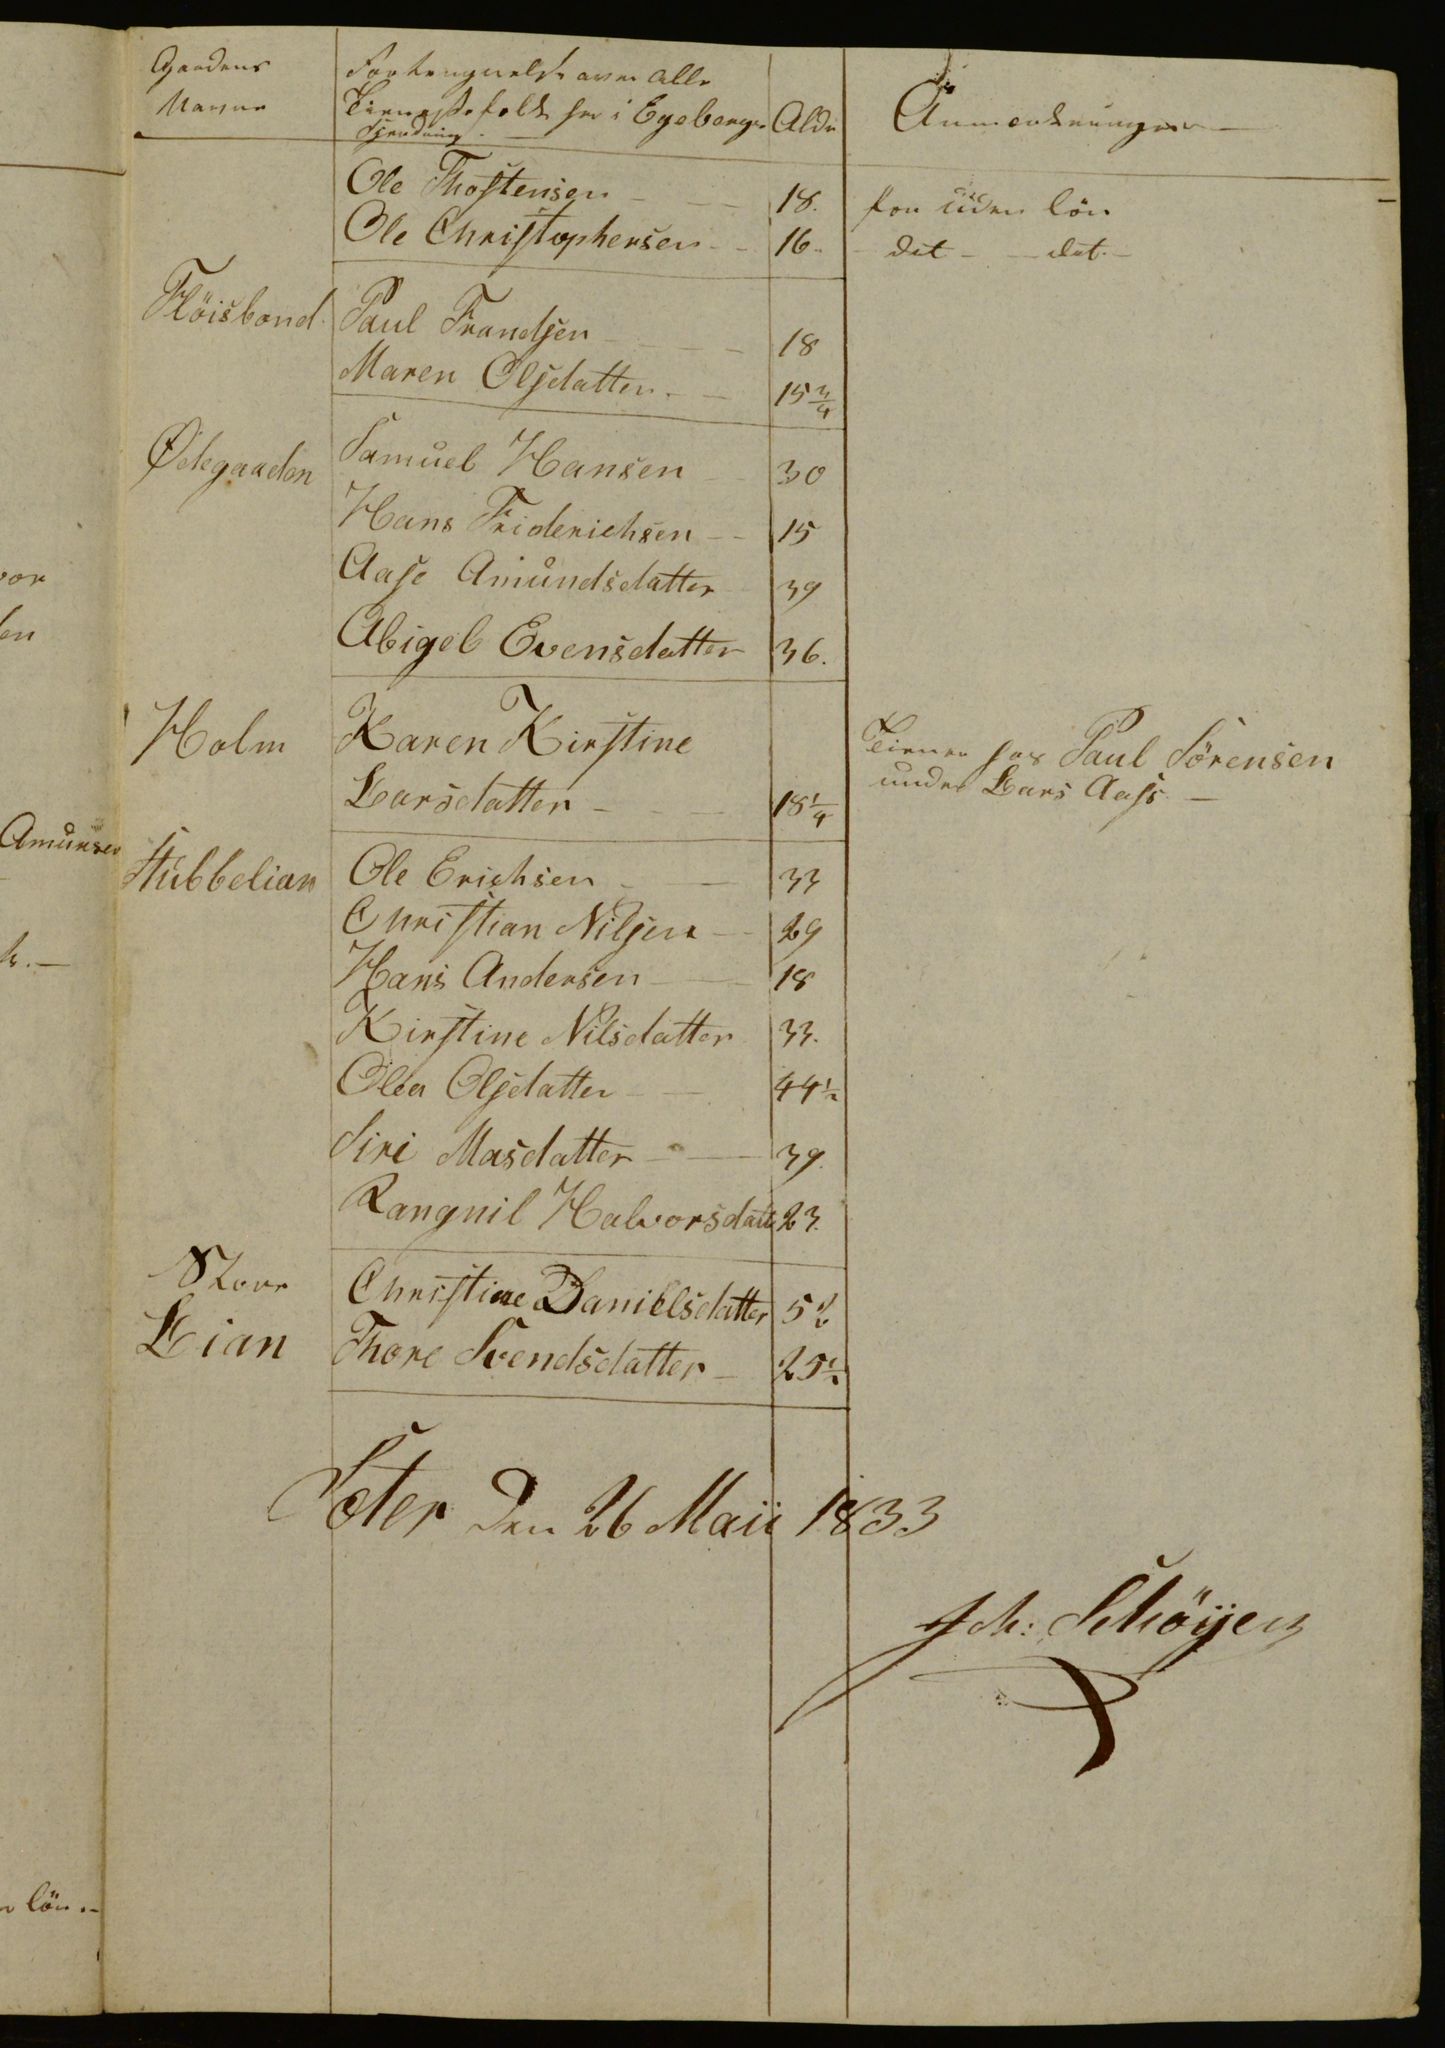 Gaardens
Navne
Fortengnelse over alle
Tieneste folk her i Egebergs
Fierding.
Alder
Anmerkninger
Ole Thostensen 18. for uden lön
Ole Christophersen 16 - det - - det. -
Flöisbond. Paul Frandsen 18
Maren Olsdatter 15 3/4
Ødegaarden Samuel Hansen 30
Hans Friderichsen 15
Aase Amundsdatter 39
Abigel Evensdatter 36.
Holm Karen Kirstine
Larsdatter 18 1/4
Tiener hos Paul Sörensen
under Lars Aas. -
Stubbelian Ole Erichsen 33
Christian Nilsen 29
Hans Andersen 18
Kirstine Nilsdatter 33.
Olea Olsdatter 44 1/2
Siri Masdatter 39.
Rangnil Halvorsdatt 23.
Store
Lian
Christine Danielsdatter
Thore Svendsdatter 25 1/2
Sæter den 26 Maii 1833
Joh: Schöyen
vor
den
Amunsen
h. -
lön. -